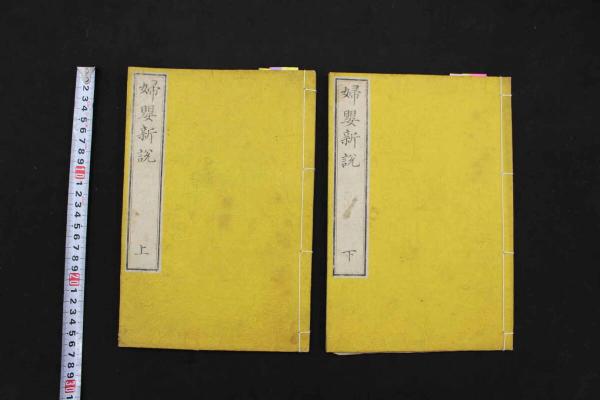 婦嬰新説
上
婦嬰新説
下
2 3 4 5 6 7 8 9 10 1 2 3 4 5 6 7 8 9 20 1 2 3 4 5 6 7 8 9 30